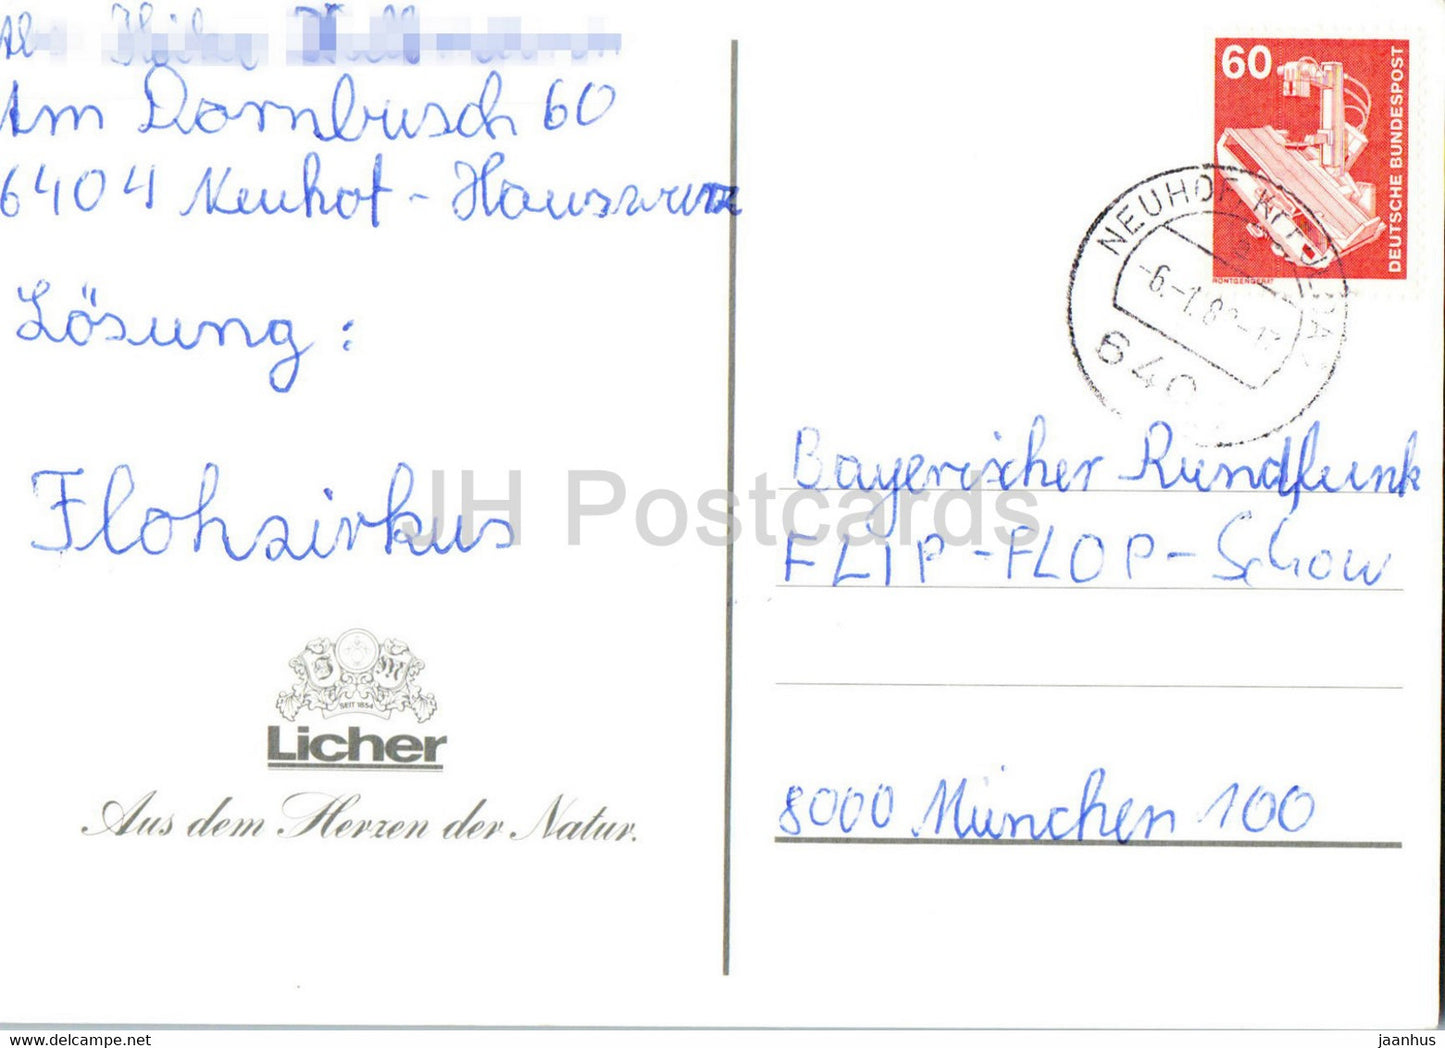 Am Dornbusch 60
6404 Neuhof - Hauswurz
Lösung :
Flohzirkus
SEIT 1854
Licher
Aus dem Herzen der Natur.
60
DEUTSCHE BUNDESPOST
RÖNTGENGERÄT
NEUHOF, KR FULDA
-6.-1.8
640
Bayerischer Rundfunk
FLIP-FLOP-Schow
8000 München 100
JH Postcards
www.jhpostcards.com
jaanhus